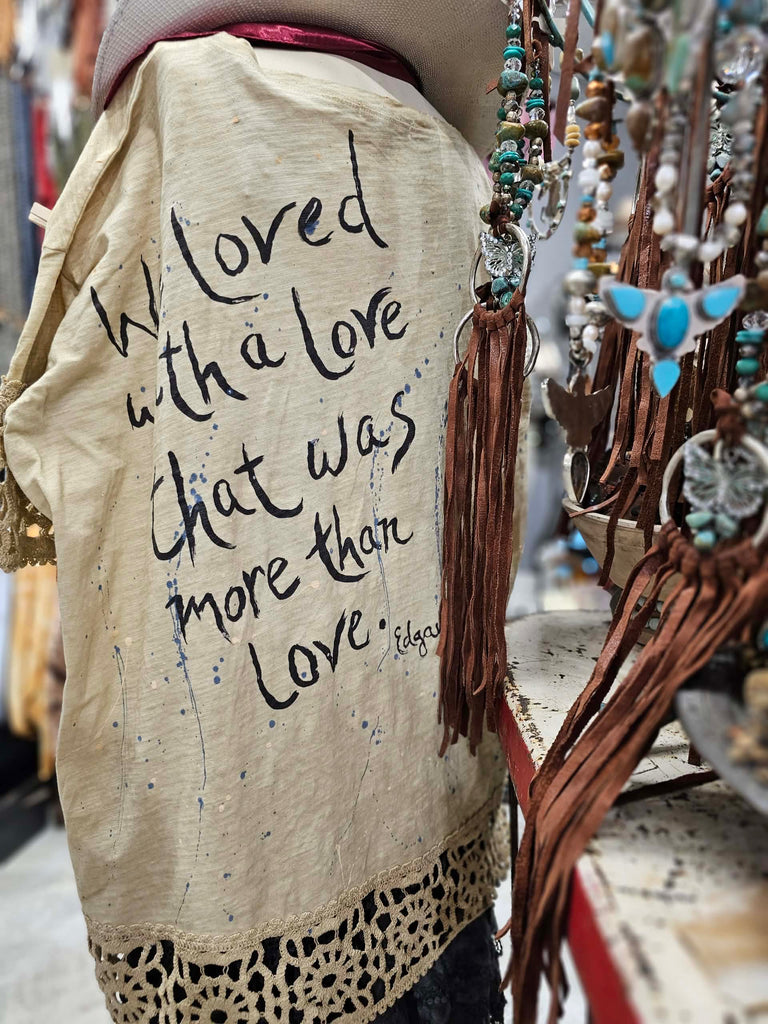 W Loved
with a Love
that was
more than
Love. Edga